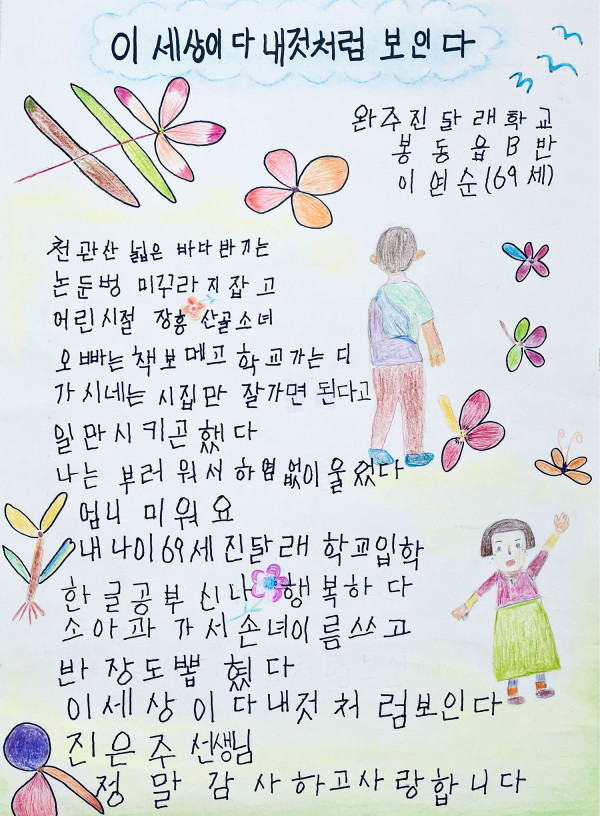 이 세상이 다 내것처럼 보인다
완주진달래학교
봉동읍B반
이연순(69세)
천관산 넓은 바다반기는
논둔벙 미꾸라지잡고
어린시절 장흥 산골소녀
오빠는책보메고 학교가는디
가시네는 시집만 잘가면 된다고
일만시키곤했다
나는 부러워서 하염없이울었다
엄니 미워요
내나이69세진달래학교입학
한글공부신나 행복하다
소아과가서손녀이름쓰고
반장도뽑혔다
이세상이다내것처럼보인다
진은주선생님
정말감사하고사랑합니다